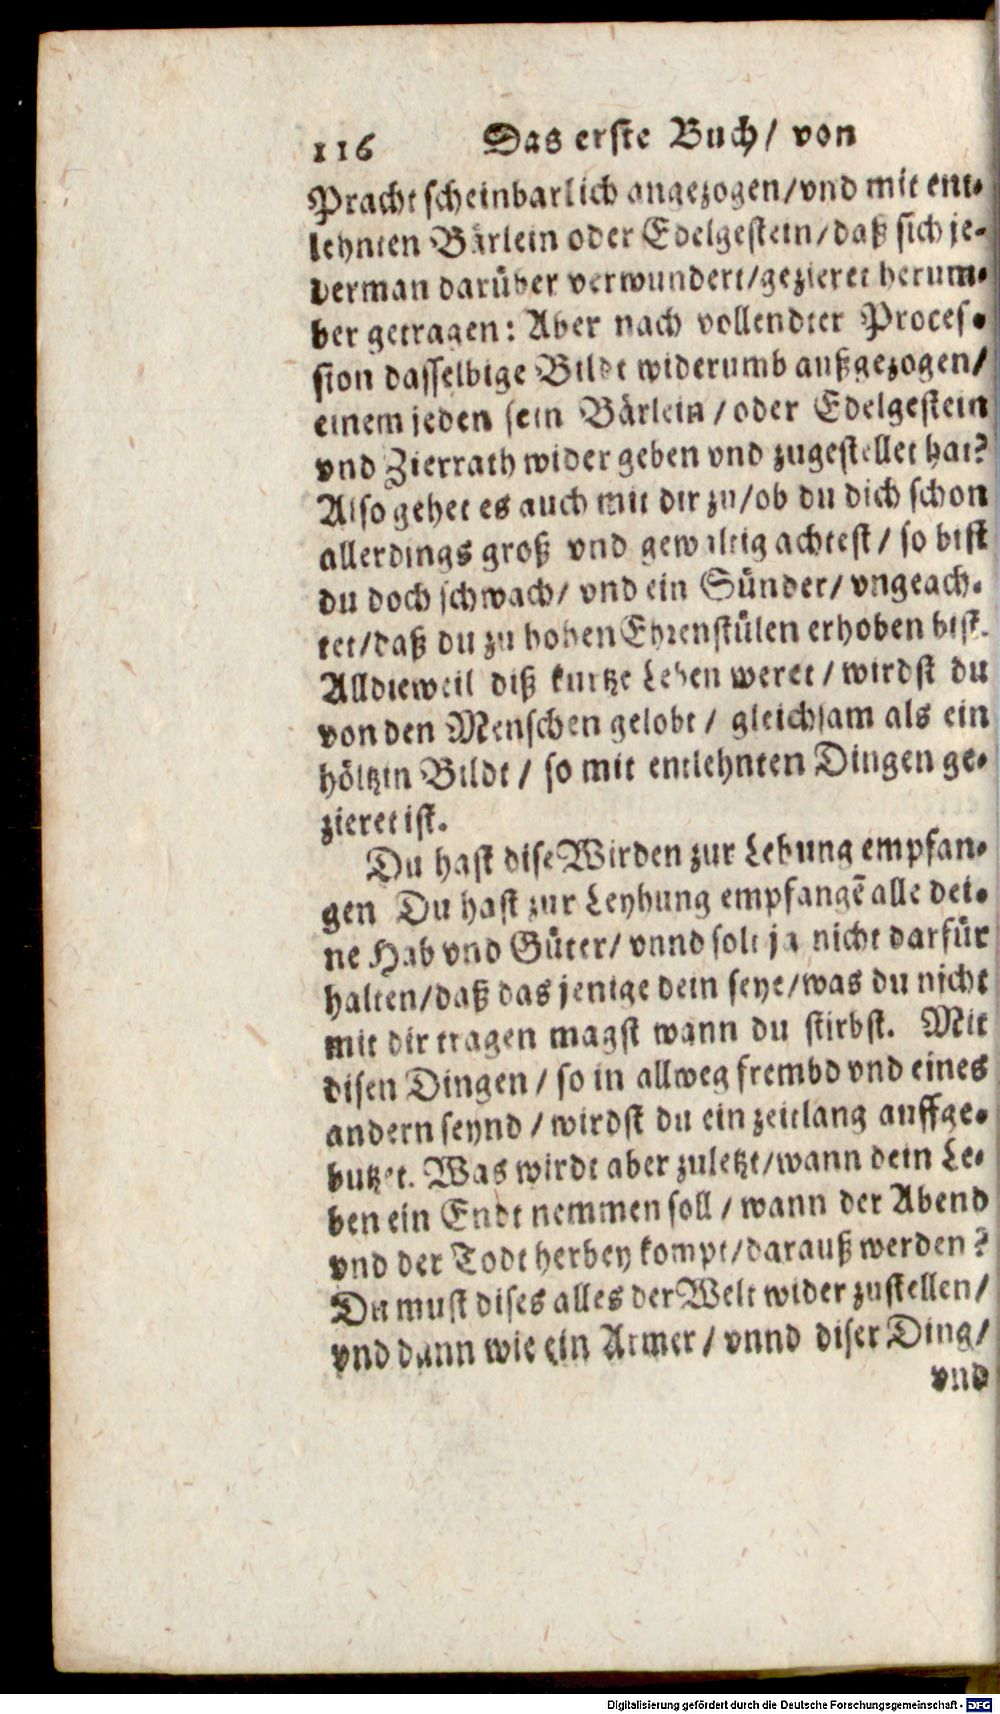 116 Das erste Buch/ von
Pracht scheinbarlich angezogen/vnd mit ent-
lehnten Bärlein oder Edelgestein/daß sich je-
derman darüber verwundert/gezieret herum-
ber getragen: Aber nach vollendter Proces-
sion dasselbige Bildt widerumb außgezogen/
einem jeden sein Bärlein/oder Edelgestein
vnd Zierrath wider geben vnd zugestellet hat?
Also gehet es auch mit dir zu/ob du dich schon
allerdings groß vnd gewaltig achtest/ so bist
du doch schwach/ vnd ein Sünder/ vngeach-
tet/daß du zu hohen Ehrenstülen erhoben bist.
Alldieweil diß kurtze Leben weret/ wirdst du
von den Menschen gelobt/ gleichsam als ein
höltzin Bildt/ so mit entlehnten Dingen ge-
zieret ist.
Du hast dise Wirden zur Lehung empfan-
gen Du hast zur Leyhung empfangē alle dei-
ne Hab vnd Güter/ vnnd solt ja nicht darfür
halten/daß das jenige dein seye/was du nicht
mit dir tragen magst wann du stirbst. Mit
disen Dingen/ so in allweg frembd vnd eines
andern seynd/ wirdst du ein zeitlang auffge-
butzet. Was wirdt aber zuletzt/wann dein Le-
ben ein Endt nemmen soll/ wann der Abend
vnd der Todt herbey kompt/darauß werden?
Du must dises alles der Welt wider zustellen/
vnd dann wie ein Armer/ vnnd diser Ding/
vnd
Digitalisierung gefördert durch die Deutsche Forschungsgemeinschaft - DFG